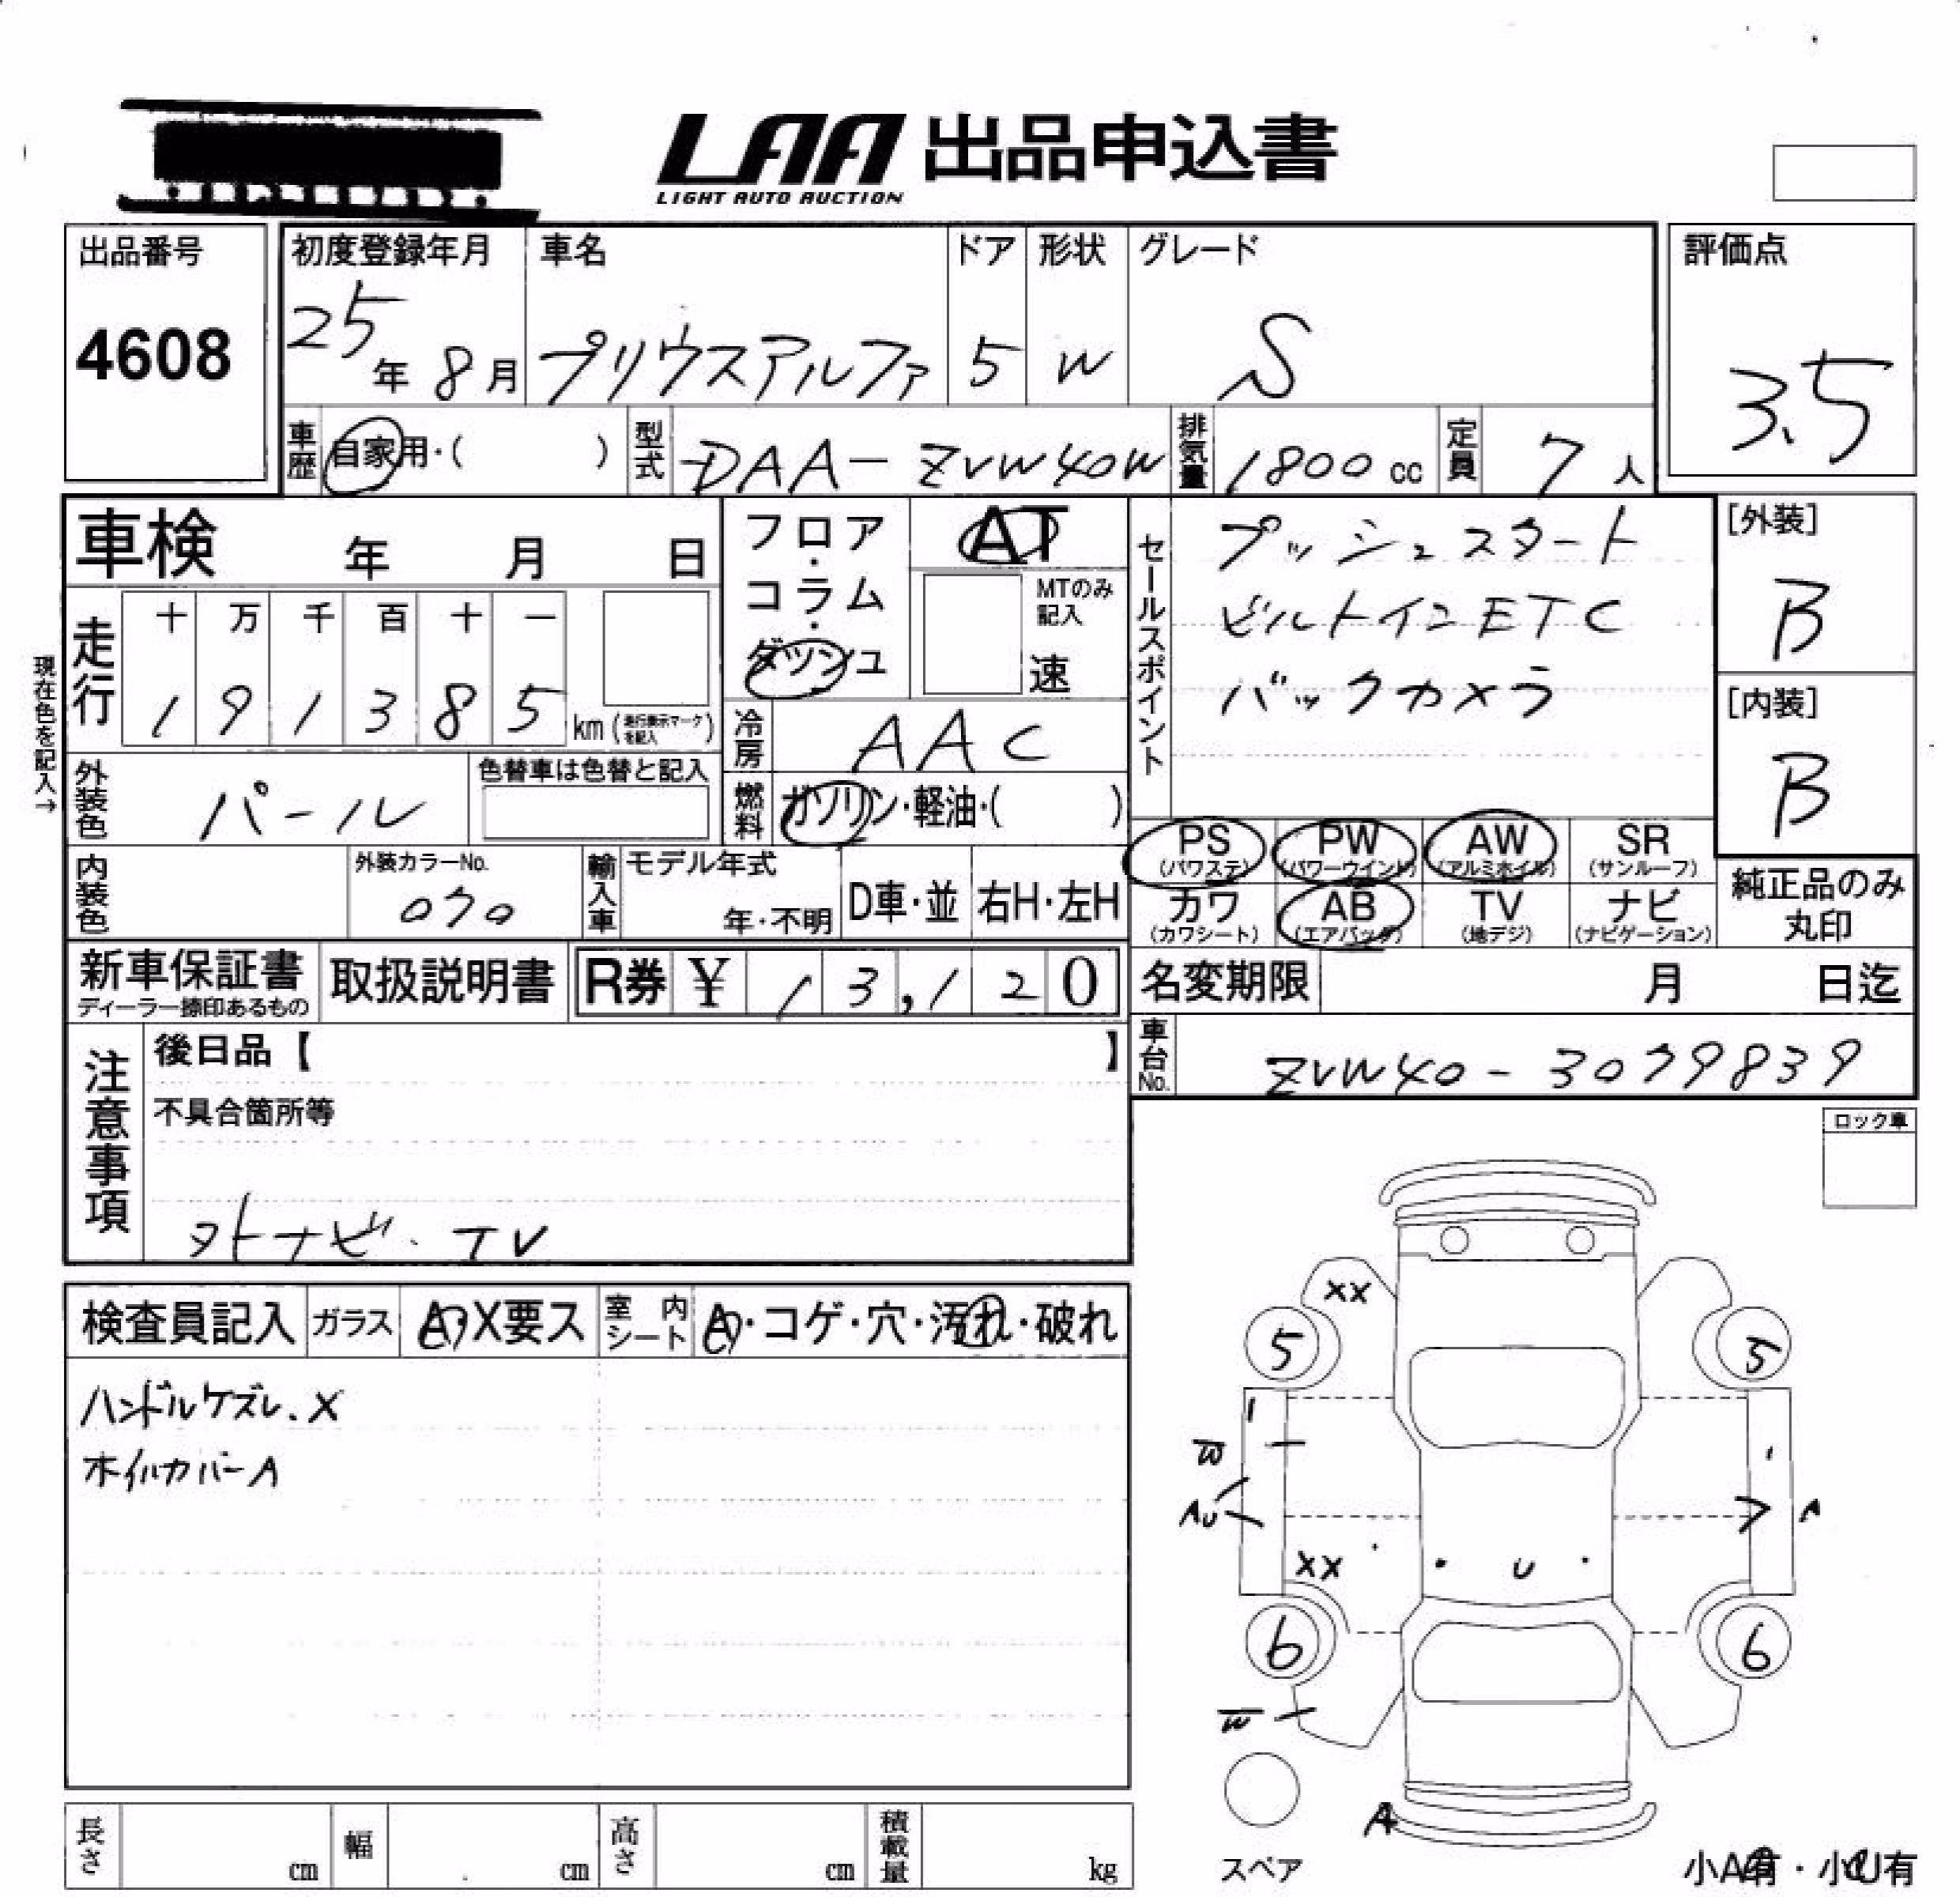 LAA 出品申込書
LIGHT AUTO AUCTION
出品番号
4608
初度登録年月
25年 8月
車名
プリウスアルファ
ドア
5
形状
W
グレード
S
評価点
3.5
車歴 自家用・( )
型式 DAA-ZVW40W
排気量 1800 cc
定員 7 人
車検 年 月 日
フロア・コラム・ダッシュ
AT
MTのみ記入
速
セールスポイント
プッシュスタート
ビルトインETC
バックカメラ
[外装]
B
[内装]
B
現在色を記入→
走行
十 万 千 百 十 一
1 9 1 3 8 5 km (走行表示マークを記入)
冷房 AAC
外装色 パール
色替車は色替と記入
燃料 ガソリン・軽油・( )
内装色
外装カラーNo.
070
輸入車
モデル年式
年・不明
D車・並
右H・左H
PS (パワステ)
PW (パワーウインド)
AW (アルミホイル)
SR (サンルーフ)
カワ (カワシート)
AB (エアバッグ)
TV (地デジ)
ナビ (ナビゲーション)
純正品のみ丸印
新車保証書
ディーラー捺印あるもの
取扱説明書
R券 ¥ 13,120
名変期限 月 日迄
車台No. ZVW40-3079839
注意事項
後日品【 】
不具合箇所等
外ナビ・TV
ロック車
検査員記入
ガラス A・X要ス
室内シート A・コゲ・穴・汚れ・破れ
ハンドルケズレ、X
ホイルカバーA
XX
5
5
W
AU
A
XX
U
6
6
W
A
スペア
長さ cm
幅 cm
高さ cm
積載量 kg
小A有・小U有